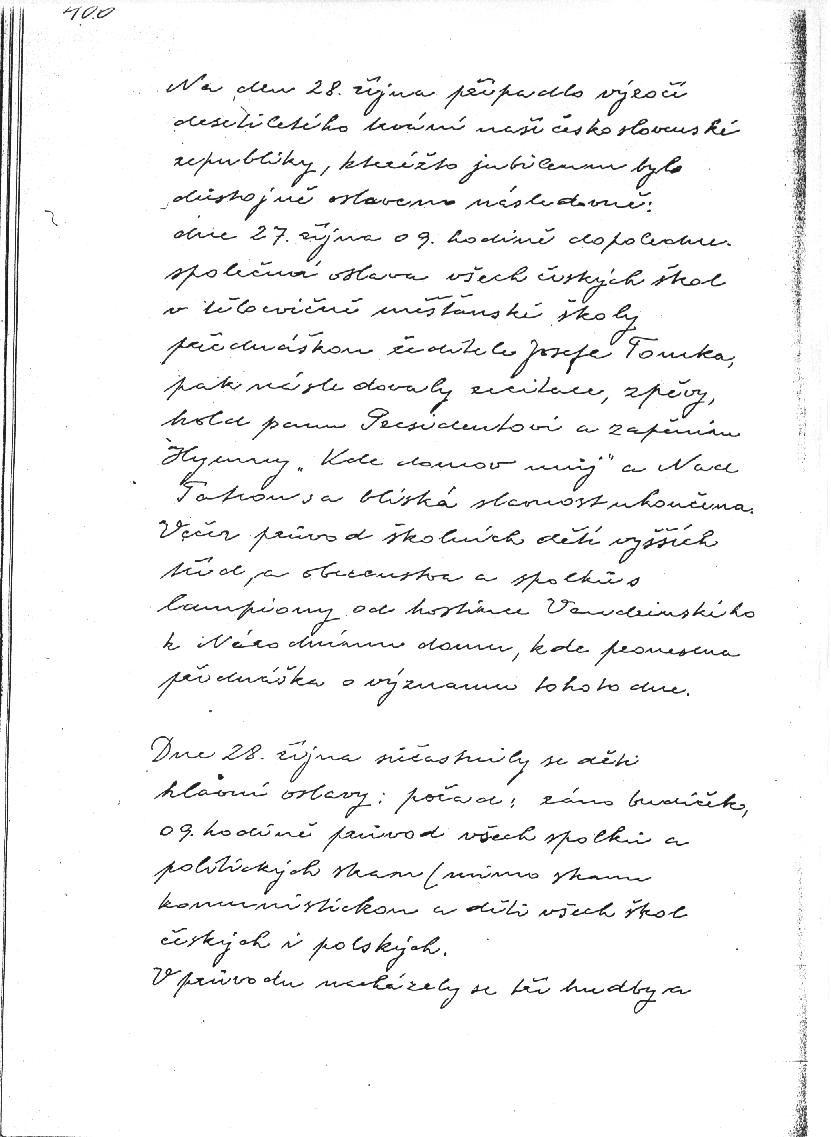 400
Na den 28. října připadlo výročí
desetiletého trvání naší československé
republiky, kteréžto jubileum bylo
důstojně oslaveno následovně:
dne 27. října o 9. hodině dopoledne
společná oslava všech českých škol
v tělocvičně měšťanské školy
přednáškou ředitele Josefa Tomka,
pak následovaly recitace, zpěvy,
hold panu Presidentovi a zapěním
Hymny „Kde domov můj" a Nad
Tatrou sa blíská slavnost ukončena.
Večer průvod školních dětí vyšších
tříd, a obecenstva a spolků s
lampiony od hostince
k Národnímu domu, kde pronesena
přednáška o významu tohoto dne.
Dne 28. října súčastnily se děti
hlavní oslavy: pořad: ráno budíček,
o 9. hodině průvod všech spolků a
politických stran (mimo stranu
komunistickou a děti všech škol
českých i polských.
V průvodu nacházely se tři hudby a